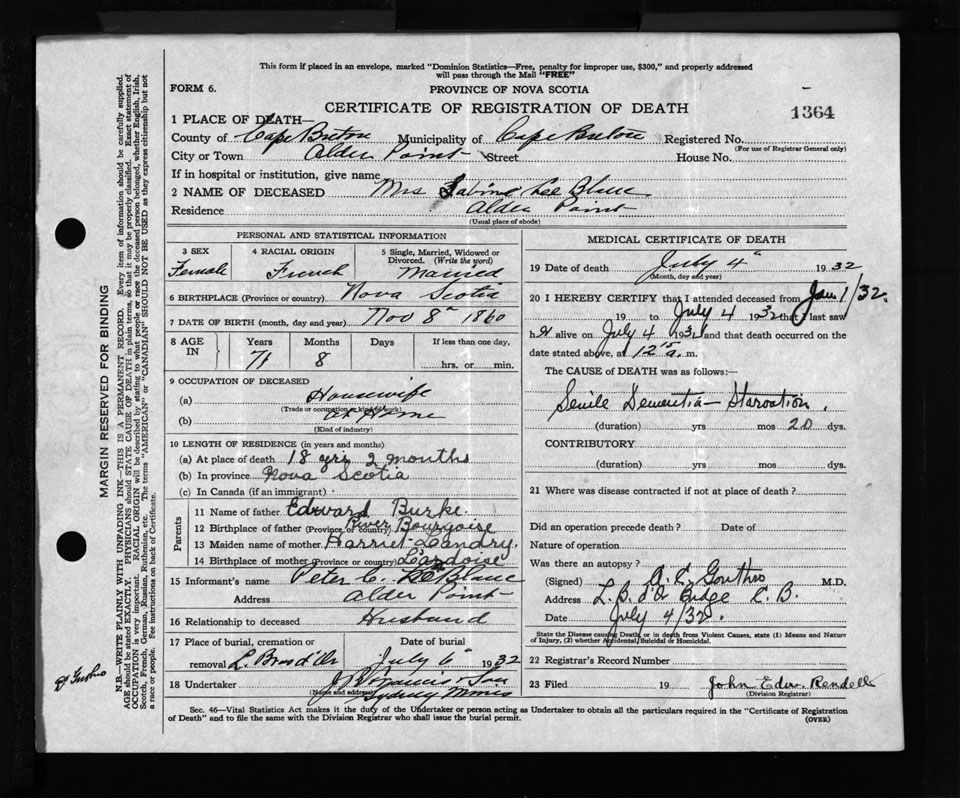 This form if placed in an envelope, marked "Dominion Statistics—Free, penalty for improper use, $300," and properly addressed
will pass through the Mail "FREE"
FORM 6.
PROVINCE OF NOVA SCOTIA
CERTIFICATE OF REGISTRATION OF DEATH
1364
1 PLACE OF DEATH—
County of Cape Breton Municipality of Cape Breton Registered No.
(For use of Registrar General only)
City or Town Alder Point Street House No.
If in hospital or institution, give name
2 NAME OF DECEASED Mrs Sabine Lee Blanc
Residence Alder Point
(Usual place of abode)
PERSONAL AND STATISTICAL INFORMATION
3 SEX Female
4 RACIAL ORIGIN French
5 Single, Married, Widowed or Divorced. (Write the word) Married
6 BIRTHPLACE (Province or country) Nova Scotia
7 DATE OF BIRTH (month, day and year) Nov 8th 1860
8 AGE IN
Years Months Days If less than one day,
71 8 hrs. or min.
9 OCCUPATION OF DECEASED
(a) Housewife
(Trade or occupation or kind of work)
(b) At Home
(Kind of industry)
10 LENGTH OF RESIDENCE (in years and months)
(a) At place of death 18 yrs 2 months
(b) In province Nova Scotia
(c) In Canada (if an immigrant)
Parents
11 Name of father Edward Burke
12 Birthplace of father (Province or country) River Bourgoise
13 Maiden name of mother Harriet Landry.
14 Birthplace of mother (Province or country) L'ardoise
15 Informant's name Peter C. Le Blanc
Address Alder Point
16 Relationship to deceased Husband
17 Place of burial, cremation or Date of burial
removal L. Bras d'Or July 6 1932
18 Undertaker & Son
(Name and address) Sydney Mines
MEDICAL CERTIFICATE OF DEATH
19 Date of death July 4 1932
(Month, day and year)
20 I HEREBY CERTIFY that I attended deceased from Jan 1/32.
19 to July 4 1932 that I last saw
h er alive on July 4 193 and that death occurred on the
date stated above, at 12 15 a. m.
The CAUSE of DEATH was as follows:—
Senile Dementia — Starvation.
(duration) yrs mos 20 dys.
CONTRIBUTORY
(duration) yrs mos dys.
21 Where was disease contracted if not at place of death?
Did an operation precede death? Date of
Nature of operation
Was there an autopsy?
(Signed) A. E. Gouthro M.D.
Address L. B. d'Or Bridge C. B.
Date July 4/32.
State the Disease causing Death, or in death from Violent Causes, state (1) Means and Nature
of Injury, (2) whether Accidental, Suicidal or Homicidal.
22 Registrar's Record Number
23 Filed 19 John Edw. Rendell
(Division Registrar)
Sec. 46—Vital Statistics Act makes it the duty of the Undertaker or person acting as Undertaker to obtain all the particulars required in the "Certificate of Registration
of Death" and to file the same with the Division Registrar who shall issue the burial permit.
(OVER)
MARGIN RESERVED FOR BINDING
N.B.—WRITE PLAINLY WITH UNFADING INK—THIS IS A PERMANENT RECORD. Every item of information should be carefully supplied.
AGE should be stated EXACTLY. PHYSICIANS should STATE CAUSE OF DEATH in plain terms, so that it may be properly classified. Exact statement of
OCCUPATION is very important. RACIAL ORIGIN will be described by stating to what people or race the deceased person belonged, whether English, Irish,
Scotch, French, German, Russian, Ruthenian, etc. The terms "AMERICAN" or "CANADIAN" SHOULD NOT BE USED as they express citizenship but not
a race or people. See instructions on back of Certificate.